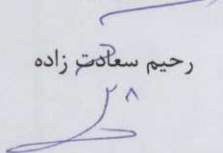 رحیم سعادت زاده
۲۸